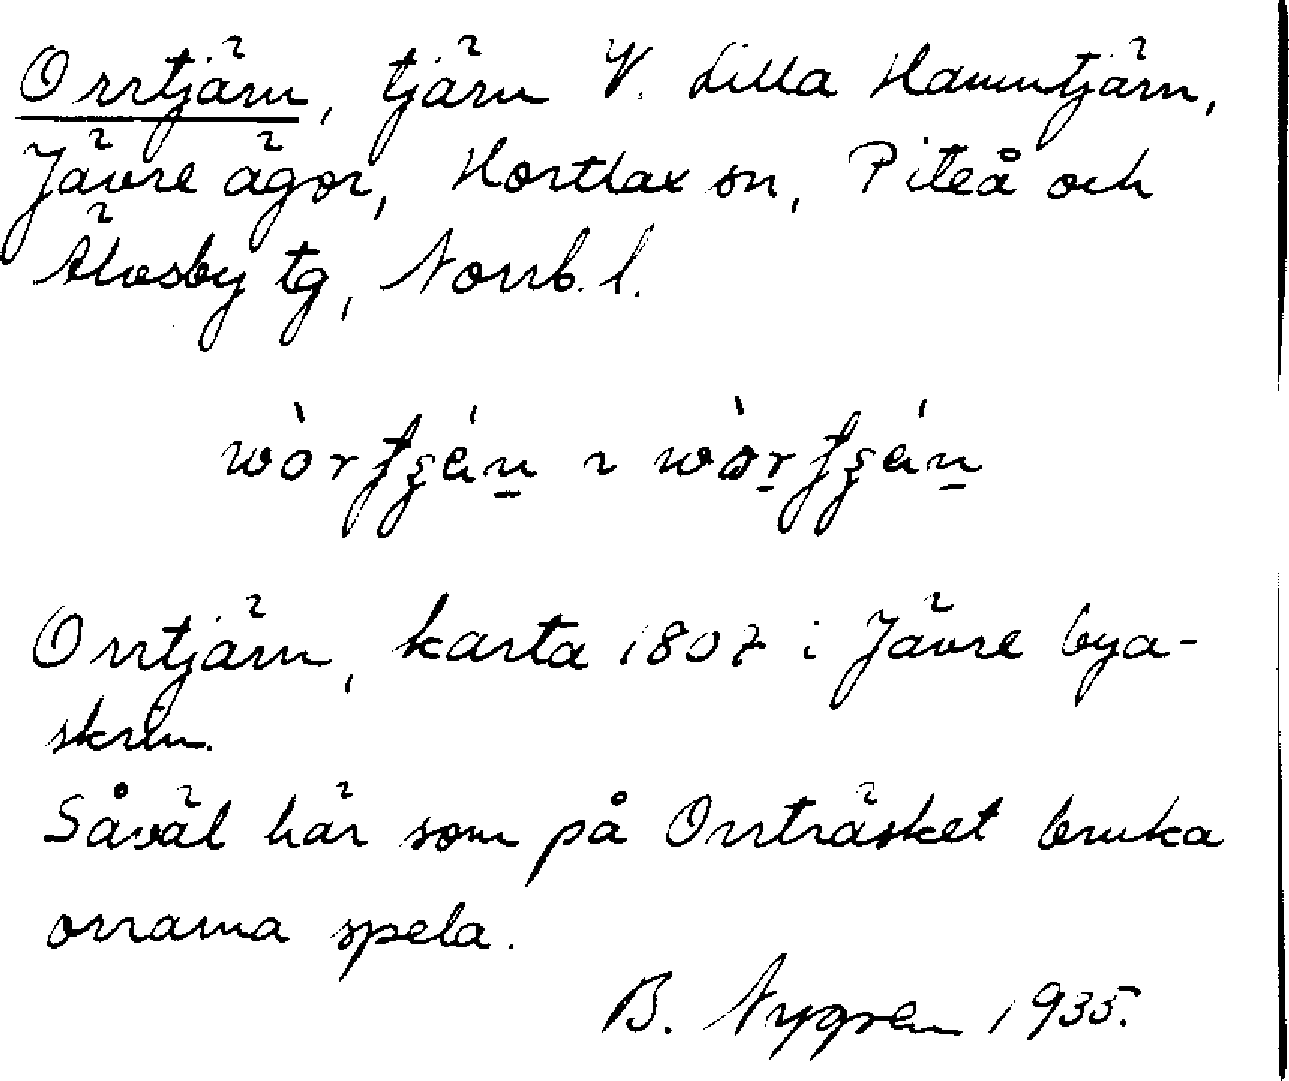 Orrtjärn, tjärn V. Lilla Hamntjärn,
Jävre ägor, Hortlax sn, Piteå och
Älvsby tg, Norrb. l.
Orrtjärn, karta 1807 i Jävre bya-
skrin.
Såväl här som på Orrträsket bruka
orrarna spela.
B. Nygren 1935.